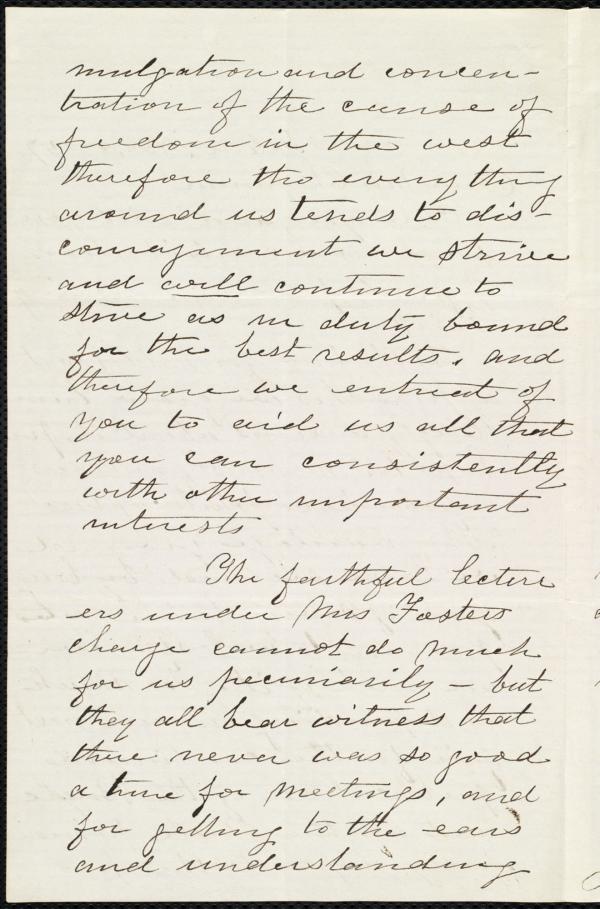 mulgation and concen-
tration of the cause of
freedom in the west
therefore tho every thing
around us tends to dis-
couragement we strive
and will continue to
strive as in duty bound
for the best results, and
therefore we entreat of
you to aid us all that
you can consistently
with other important
interests
The faithful lectur
ers under Mrs Fosters
charge cannot do much
for us pecuniarily - but
they all bear witness that
there never was so good
a time for meetings, and
for getting to the ears
and understanding